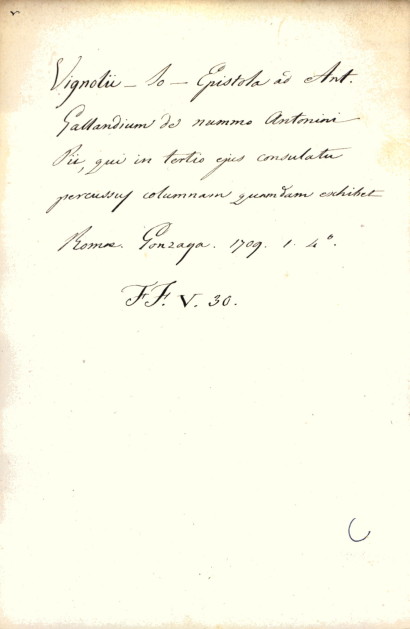 Vignolii – Jo – Epistola ad Ant.
Gallandium de nummo Antonini
Pii, qui in tertio ejus consulatu
percussus columnam quamdam exhibet
Romæ. Gonzaga. 1709. 1. 4°.
FF. V. 30.